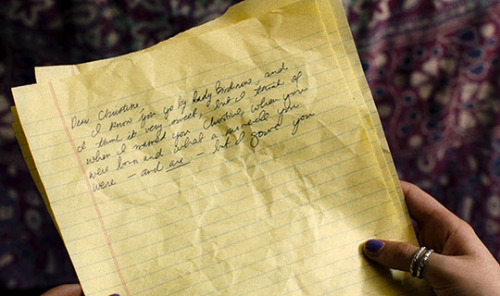 Dear Christine,
I know you go by Lady Bird now, and
I think it very sweet, but I think of
when I named you Christine when you
were born and what a you
were – and are – but I found you